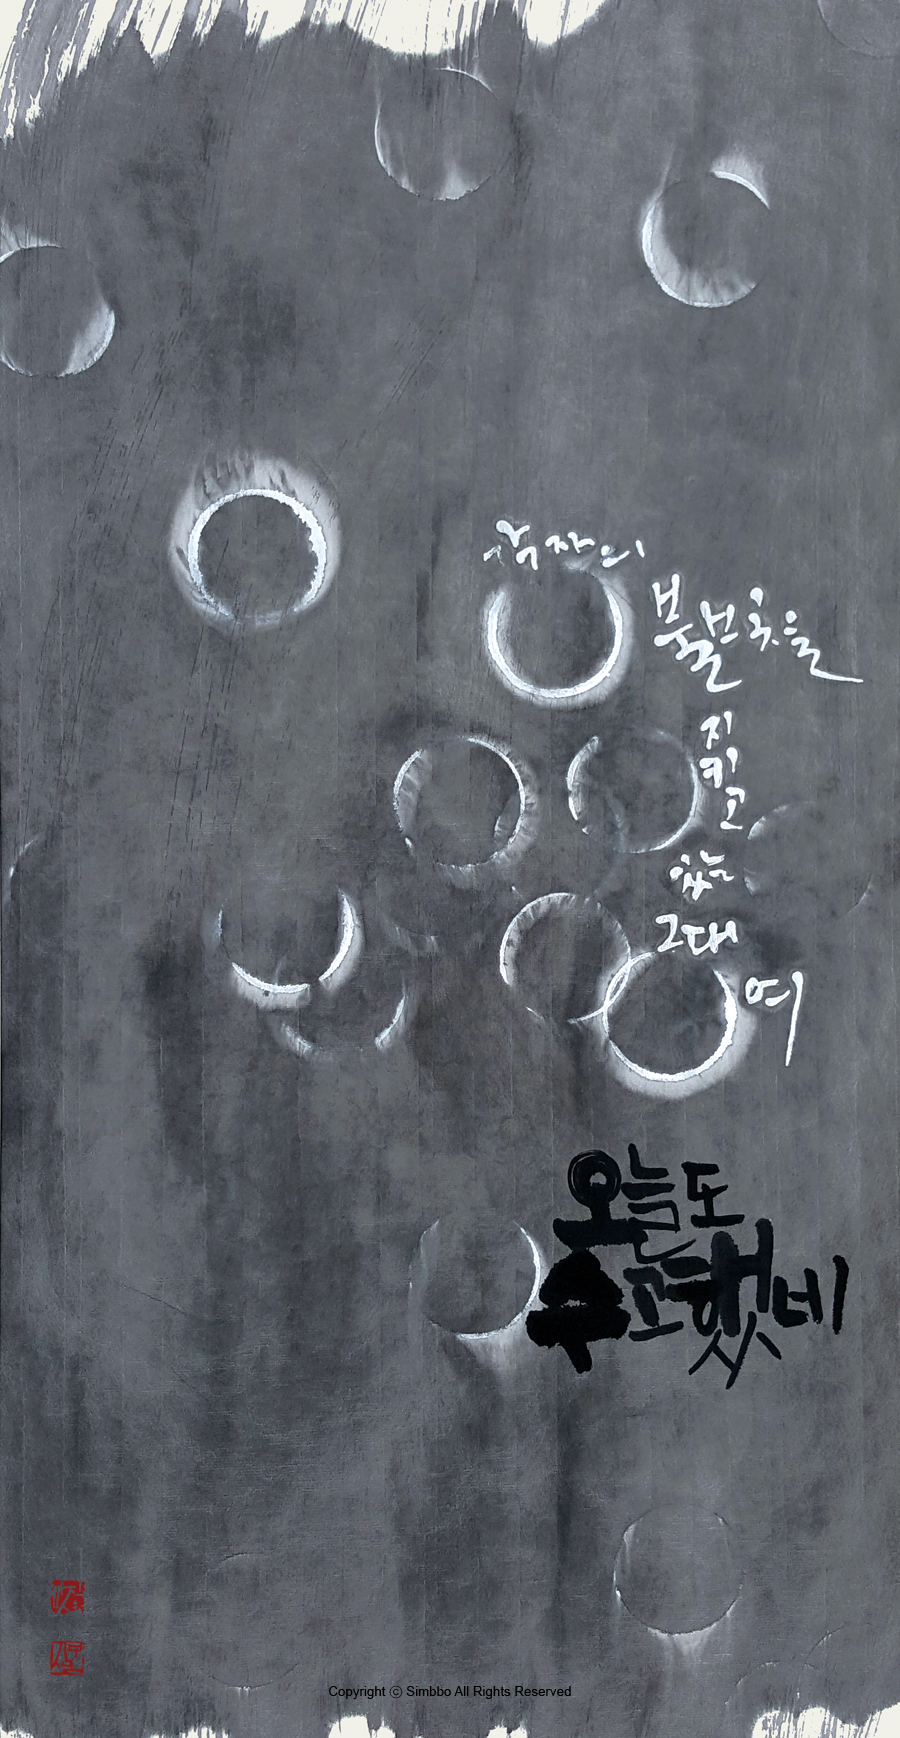 각자의
불빛을
지키고
있는
그대
여
오늘도
수고했네
Copyright ⓒ Simbbo All Rights Reserved